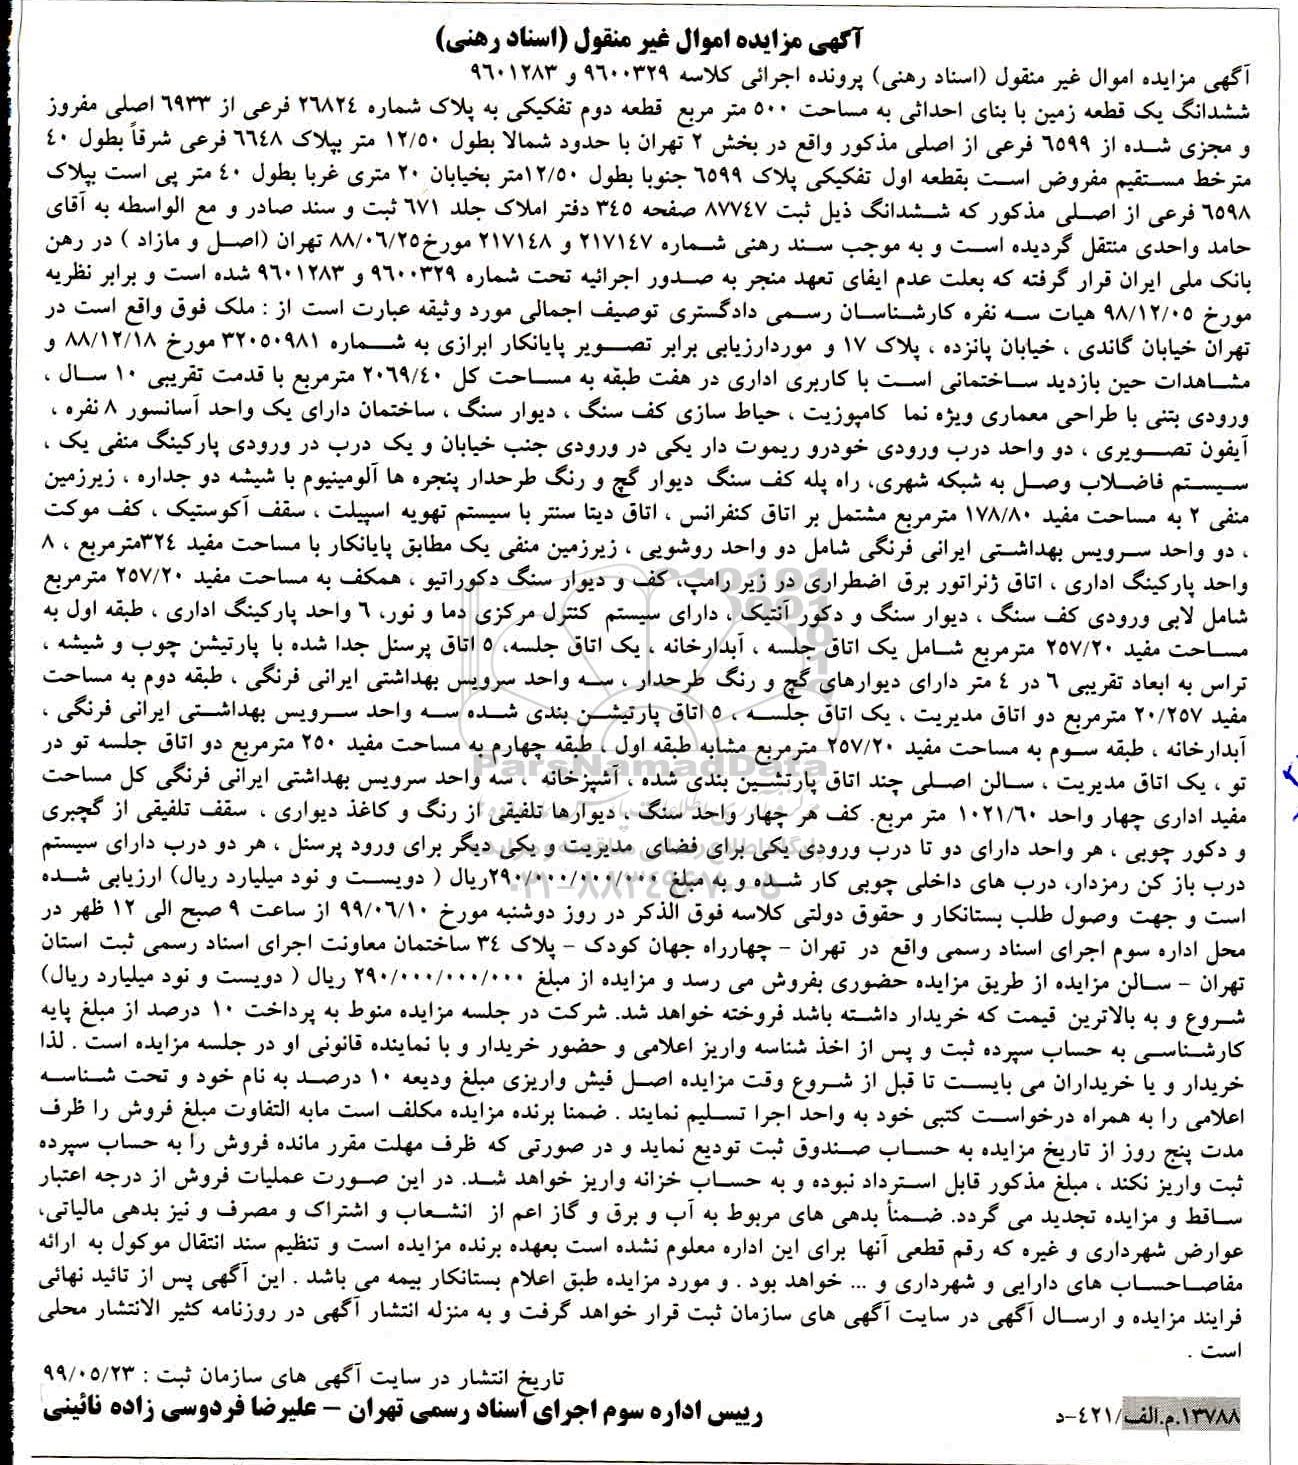 آگهی مزایده اموال غیر منقول (اسناد رهنی)
آگهی مزایده اموال غیر منقول (اسناد رهنی) پرونده اجرائی کلاسه ۹۶۰۰۳۲۹ و ۹۶۰۱۲۸۳
ششدانگ یک قطعه زمین با بنای احداثی به مساحت ۵۰۰ متر مربع قطعه دوم تفکیکی به پلاک شماره ۲۶۸۲۴ فرعی از ۶۹۳۳ اصلی مفروز
و مجزی شده از ۶۵۹۹ فرعی از اصلی مذکور واقع در بخش ۲ تهران با حدود شمالا بطول ۱۲/۵۰ متر بپلاک ۶۶۴۸ فرعی شرقاً بطول ۴۰
مترخط مستقیم مفروض است بقطعه اول تفکیکی پلاک ۶۵۹۹ جنوبا بطول ۱۲/۵۰متر بخیابان ۲۰ متری غربا بطول ۴۰ متر پی است بپلاک
۶۵۹۸ فرعی از اصلی مذکور که ششدانگ ذیل ثبت ۸۷۷۴۷ صفحه ۳۴۵ دفتر املاک جلد ۶۷۱ ثبت و سند صادر و مع الواسطه به آقای
حامد واحدی منتقل گردیده است و به موجب سند رهنی شماره ۲۱۷۱۴۷ و ۲۱۷۱۴۸ مورخ۸۸/۰۶/۲۵ تهران (اصل و مازاد ) در رهن
بانک ملی ایران قرار گرفته که بعلت عدم ایفای تعهد منجر به صدور اجرائیه تحت شماره ۹۶۰۰۳۲۹ و ۹۶۰۱۲۸۳ شده است و برابر نظریه
مورخ ۹۸/۱۲/۰۵ هیات سه نفره کارشناسان رسمی دادگستری توصیف اجمالی مورد وثیقه عبارت است از : ملک فوق واقع است در
تهران خیابان گاندی ، خیابان پانزده ، پلاک ۱۷ و موردارزیابی برابر تصویر پایانکار ابرازی به شماره ۳۲۰۵۰۹۸۱ مورخ ۸۸/۱۲/۱۸ و
مشاهدات حین بازدید ساختمانی است با کاربری اداری در هفت طبقه به مساحت کل ۲۰۶۹/۴۰ مترمربع با قدمت تقریبی ۱۰ سال ،
ورودی بتنی با طراحی معماری ویژه نما کامپوزیت ، حیاط سازی کف سنگ ، دیوار سنگ ، ساختمان دارای یک واحد آسانسور ۸ نفره ،
آیفون تصویری ، دو واحد درب ورودی خودرو ریموت دار یکی در ورودی جنب خیابان و یک درب در ورودی پارکینگ منفی یک ،
سیستم فاضلاب وصل به شبکه شهری، راه پله کف سنگ دیوار گچ و رنگ طرحدار پنجره ها آلومینیوم با شیشه دو جداره ، زیرزمین
منفی ۲ به مساحت مفید ۱۷۸/۸۰ مترمربع مشتمل بر اتاق کنفرانس ، اتاق دیتا سنتر با سیستم تهویه اسپیلت ، سقف آکوستیک ، کف موکت
، دو واحد سرویس بهداشتی ایرانی فرنگی شامل دو واحد روشویی ، زیرزمین منفی یک مطابق پایانکار با مساحت مفید ۳۲۴مترمربع ، ۸
واحد پارکینگ اداری ، اتاق ژنراتور برق اضطراری در زیر رامپ، کف و دیوار سنگ دکوراتیو ، همکف به مساحت مفید ۲۵۷/۲۰ مترمربع
شامل لابی ورودی کف سنگ ، دیوار سنگ و دکور آنتیک ، دارای سیستم کنترل مرکزی دما و نور، ۶ واحد پارکینگ اداری ، طبقه اول به
مساحت مفید ۲۵۷/۲۰ مترمربع شامل یک اتاق جلسه ، آبدارخانه ، یک اتاق جلسه، ۵ اتاق پرسنل جدا شده با پارتیشن چوب و شیشه ،
تراس به ابعاد تقریبی ۶ در ۴ متر دارای دیوارهای گچ و رنگ طرحدار ، سه واحد سرویس بهداشتی ایرانی فرنگی ، طبقه دوم به مساحت
مفید ۲۰/۲۵۷ مترمربع دو اتاق مدیریت ، یک اتاق جلسه ، ۵ اتاق پارتیشن بندی شده سه واحد سرویس بهداشتی ایرانی فرنگی ،
آبدارخانه ، طبقه سوم به مساحت مفید ۲۵۷/۲۰ مترمربع مشابه طبقه اول ، طبقه چهارم به مساحت مفید ۲۵۰ مترمربع دو اتاق جلسه تو در
تو ، یک اتاق مدیریت ، سالن اصلی چند اتاق پارتشین بندی شده ، آشپزخانه ، سه واحد سرویس بهداشتی ایرانی فرنگی کل مساحت
مفید اداری چهار واحد ۱۰۲۱/۶۰ متر مربع. کف هر چهار واحد سنگ ، دیوارها تلفیقی از رنگ و کاغذ دیواری ، سقف تلفیقی از گچبری
و دکور چوبی ، هر واحد دارای دو تا درب ورودی یکی برای فضای مدیریت و یکی دیگر برای ورود پرسنل ، هر دو درب دارای سیستم
درب باز کن رمزدار، درب های داخلی چوبی کار شده و به مبلغ ۲۹۰/۰۰۰/۰۰۰/۰۰۰ریال ( دویست و نود میلیارد ریال) ارزیابی شده
است و جهت وصول طلب بستانکار و حقوق دولتی کلاسه فوق الذکر در روز دوشنبه مورخ ۹۹/۰۶/۱۰ از ساعت ۹ صبح الی ۱۲ ظهر در
محل اداره سوم اجرای اسناد رسمی واقع در تهران - چهارراه جهان کودک - پلاک ۳۴ ساختمان معاونت اجرای اسناد رسمی ثبت استان
تهران - سالن مزایده از طریق مزایده حضوری بفروش می رسد و مزایده از مبلغ ۲۹۰/۰۰۰/۰۰۰/۰۰۰ ریال ( دویست و نود میلیارد ریال)
شروع و به بالاترین قیمت که خریدار داشته باشد فروخته خواهد شد. شرکت در جلسه مزایده منوط به پرداخت ۱۰ درصد از مبلغ پایه
کارشناسی به حساب سپرده ثبت و پس از اخذ شناسه واریز اعلامی و حضور خریدار و با نماینده قانونی او در جلسه مزایده است . لذا
خریدار و یا خریداران می بایست تا قبل از شروع وقت مزایده اصل فیش واریزی مبلغ ودیعه ۱۰ درصد به نام خود و تحت شناسه
اعلامی را به همراه درخواست کتبی خود به واحد اجرا تسلیم نمایند . ضمنا برنده مزایده مکلف است مابه التفاوت مبلغ فروش را ظرف
مدت پنج روز از تاریخ مزایده به حساب صندوق ثبت تودیع نماید و در صورتی که ظرف مهلت مقرر مانده فروش را به حساب سپرده
ثبت واریز نکند ، مبلغ مذکور قابل استرداد نبوده و به حساب خزانه واریز خواهد شد. در این صورت عملیات فروش از درجه اعتبار
ساقط و مزایده تجدید می گردد. ضمناً بدهی های مربوط به آب و برق و گاز اعم از انشعاب و اشتراک و مصرف و نیز بدهی مالیاتی،
عوارض شهرداری و غیره که رقم قطعی آنها برای این اداره معلوم نشده است بعهده برنده مزایده است و تنظیم سند انتقال موکول به ارائه
مفاصاحساب های دارایی و شهرداری و ... خواهد بود . و مورد مزایده طبق اعلام بستانکار بیمه می باشد . این آگهی پس از تائید نهائی
فرایند مزایده و ارسال آگهی در سایت آگهی های سازمان ثبت قرار خواهد گرفت و به منزله انتشار آگهی در روزنامه کثیر الانتشار محلی
است .
تاریخ انتشار در سایت آگهی های سازمان ثبت : ۹۹/۰۵/۲۳
رییس اداره سوم اجرای اسناد رسمی تهران - علیرضا فردوسی زاده نائینی
۱۳۷۸۸.م.الف/۴۲۱-د
ParsNamadData
۰۲۱-۸۸۳۴۹۶۷۰-۵